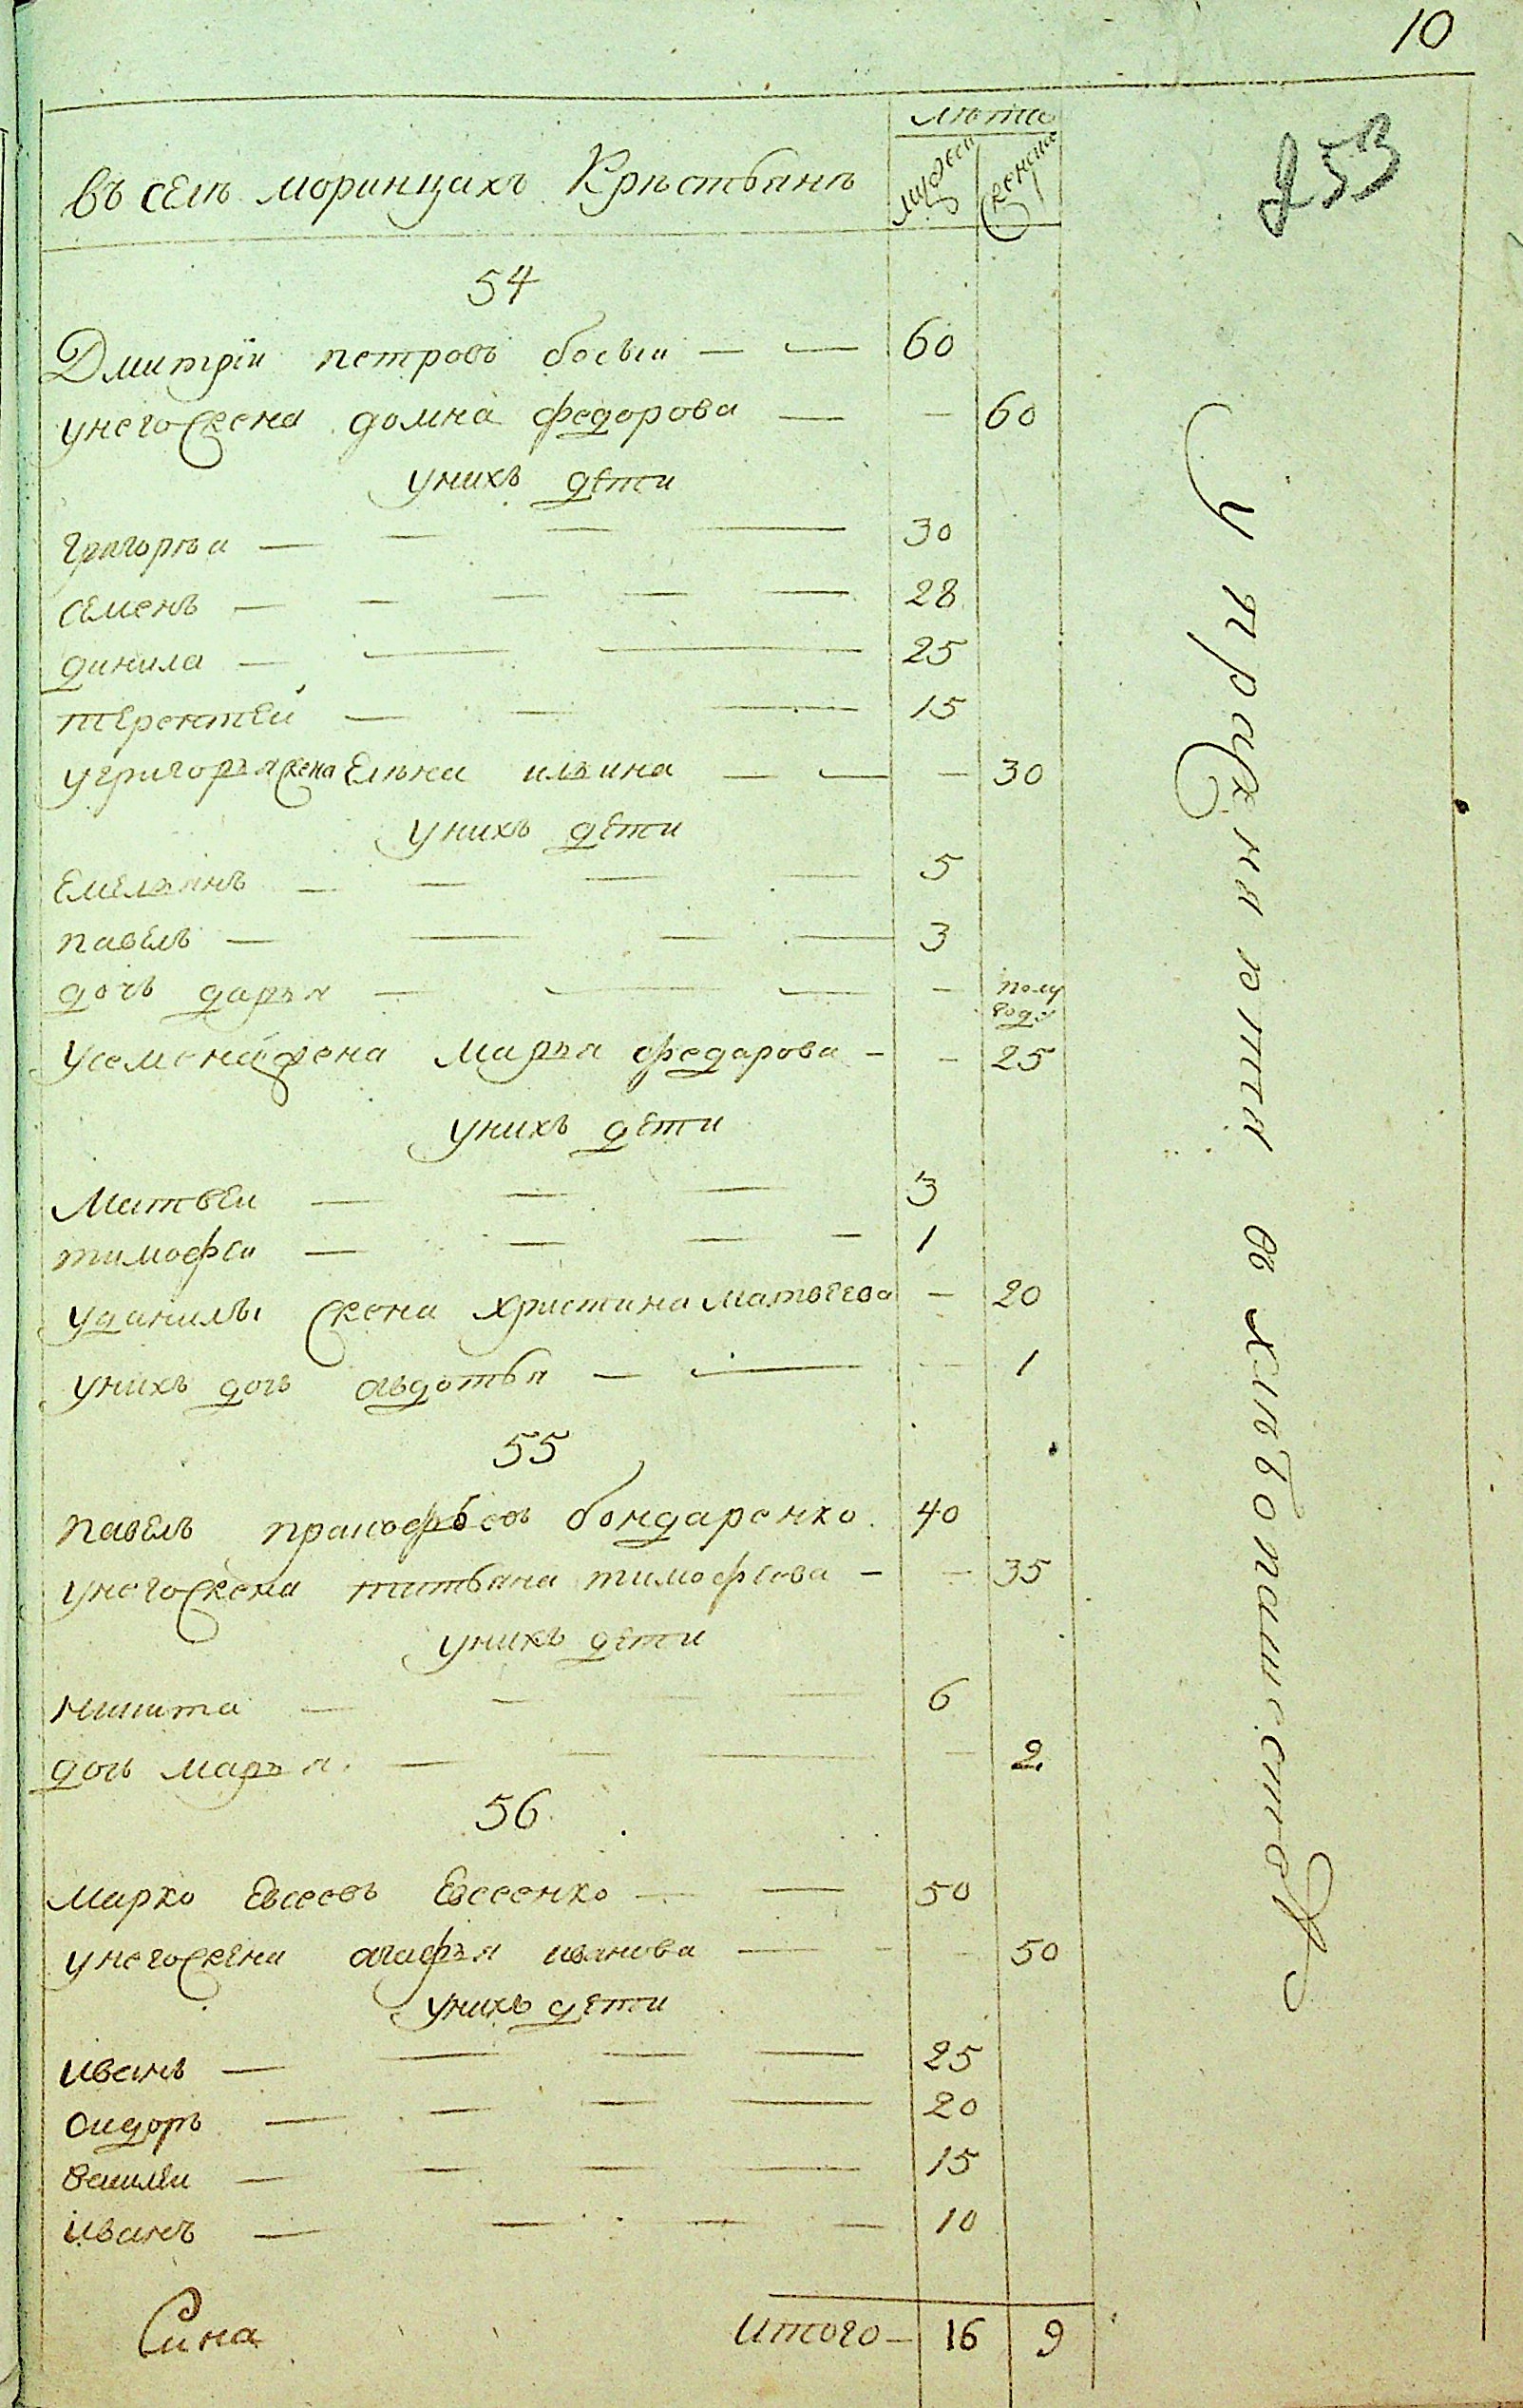 10
253
лѣта
въ селѣ моринцахъ Крѣстьянъ мужеск женска
54
Дмитрїи петровъ босыи — — 60
унего жена домна федорова — — 60
унихъ дети
григорѣи — — — — 30
семенъ — — — — — 28
данила — — — 25
терентей — — — 15
угригорья жена Елѣна ильина — — — 30
унихъ дети
Емельянъ — — — — 5
павелъ — — — — 3
дочь дарья — — — — полу году
усемена жена марья федарова — — 25
унихъ дети
Матвеи — — — 3
тимофеи — — — — 1
уданилы жена христина матвеева — 20
унихъ дочь авдотья — — — 1
55
павелъ пракофьевъ бондаренко 40
унего жена татьяна тимофеева — — 35
унихъ дети
никита — — — — 6
дочь марья — — — — 2
56
марко Евсеевъ Евсеенко — — 50
унего жена агафья иванова — — — 50
унихъ дети
иванъ — — — — 25
сидоръ — — — — 20
василеи — — — — 15
иванъ — — — — 10
Итого — 16 9
упражняетца в хлѣбопашество